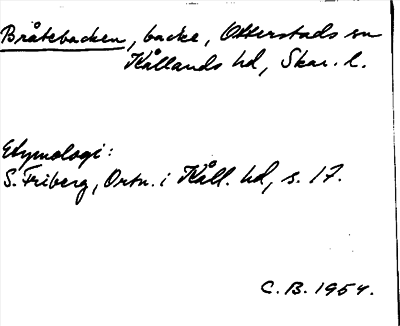 Bråtebacken, backe, Otterstads sn
Kållands hd, Skar. l.
Etymologi:
S. Friberg, Ortn. i Kåll. hd, s. 17.
C.B. 1954.